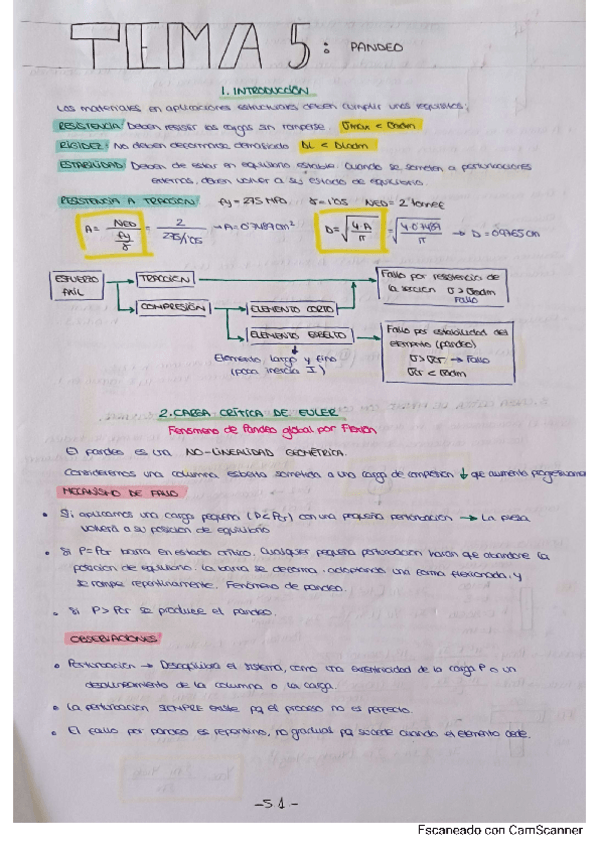 TEMA 5: PANDEO
1. INTRODUCCIÓN
Los materiales en aplicaciones estructurales deben cumplir unos requisitos:
RESISTENCIA: Deben resistir las cargas sin romperse. σmax < σadm
RIGIDEZ: No deben deformarse demasiado ΔL < ΔLadm
ESTABILIDAD: Deben de estar en equilibrio estable. Cuando se someten a perturbaciones
externas, deben volver a su estado de equilibrio.
RESISTENCIA A TRACCIÓN: fy = 275 MPa γ = 1'05 NED = 2 tonnes
A = NED / (fy/γ) = 2 / (275/1'05) → A = 0'7489 cm² D = √(4·A/π) = √(4·0'7489/π) → D = 0'9765 cm
ESFUERZO AXIL
TRACCIÓN
COMPRESIÓN
ELEMENTO CORTO
ELEMENTO ESBELTO
Elemento largo y fino
(poca inercia I)
Fallo por resistencia de
la sección σ > σadm
Fallo
Fallo por estabilidad del
elemento (pandeo)
σ > σcr → Fallo
σcr < σadm
2. CARGA CRÍTICA DE EULER
Fenómeno de Pandeo global por Flexión
El pandeo es una NO-LINEALIDAD GEOMÉTRICA.
Consideremos una columna esbelta sometida a una carga de compresión ↓ que aumenta progresivamen
MECANISMO DE FALLO
• Si aplicamos una carga pequeña (P < Pcr) con una pequeña perturbación → La pieza
volverá a su posición de equilibrio
• Si P = Pcr barra en estado crítico. Cualquier pequeña perturbación hará que abandone la
posición de equilibrio. La barra se deforma, adoptando una forma flexionada, y
se rompe repentinamente. Fenómeno de pandeo.
• Si P > Pcr se produce el pandeo.
OBSERVACIONES
• Perturbación → Desequilibra el sistema, como una excentricidad de la carga P o un
desalineamiento de la columna o la carga.
• La perturbación SIEMPRE existe pq el proceso no es perfecto.
• El fallo por pandeo es repentino, no gradual pq sucede cuando el elemento cede.
-51-
Escaneado con CamScanner